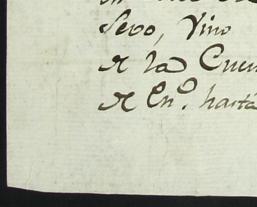 Sevo, Vino
de la Cuen
de En.º hasta